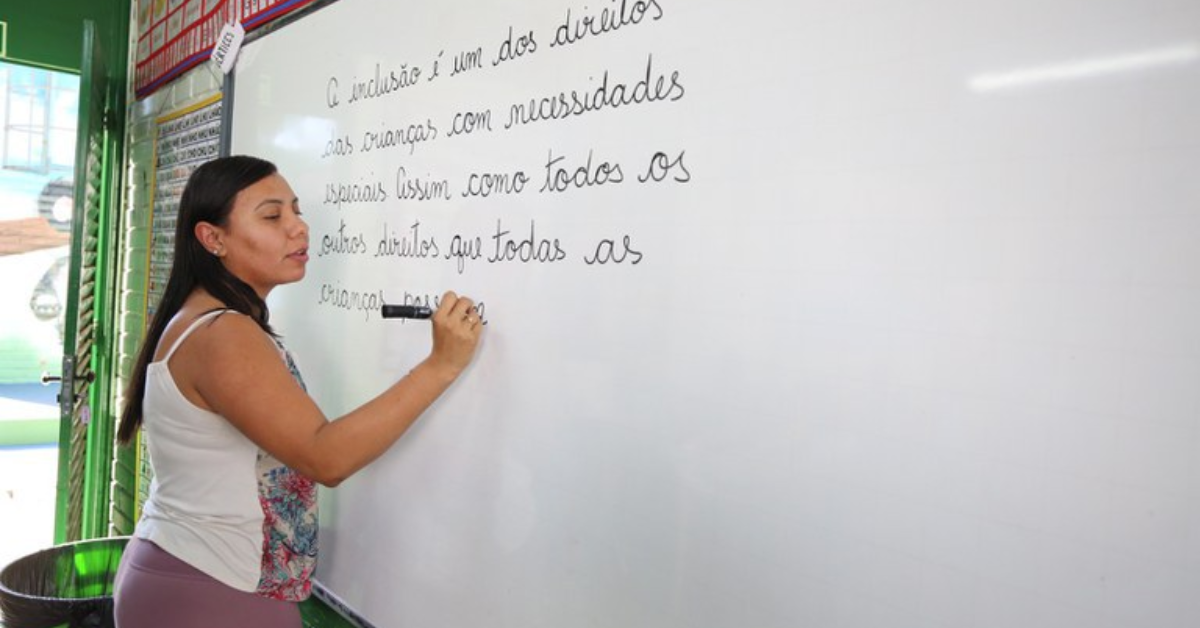 A inclusão é um dos direitos
das crianças com necessidades
especiais. Assim como todos os
outros direitos que todas as
crianças
VÉRTICES